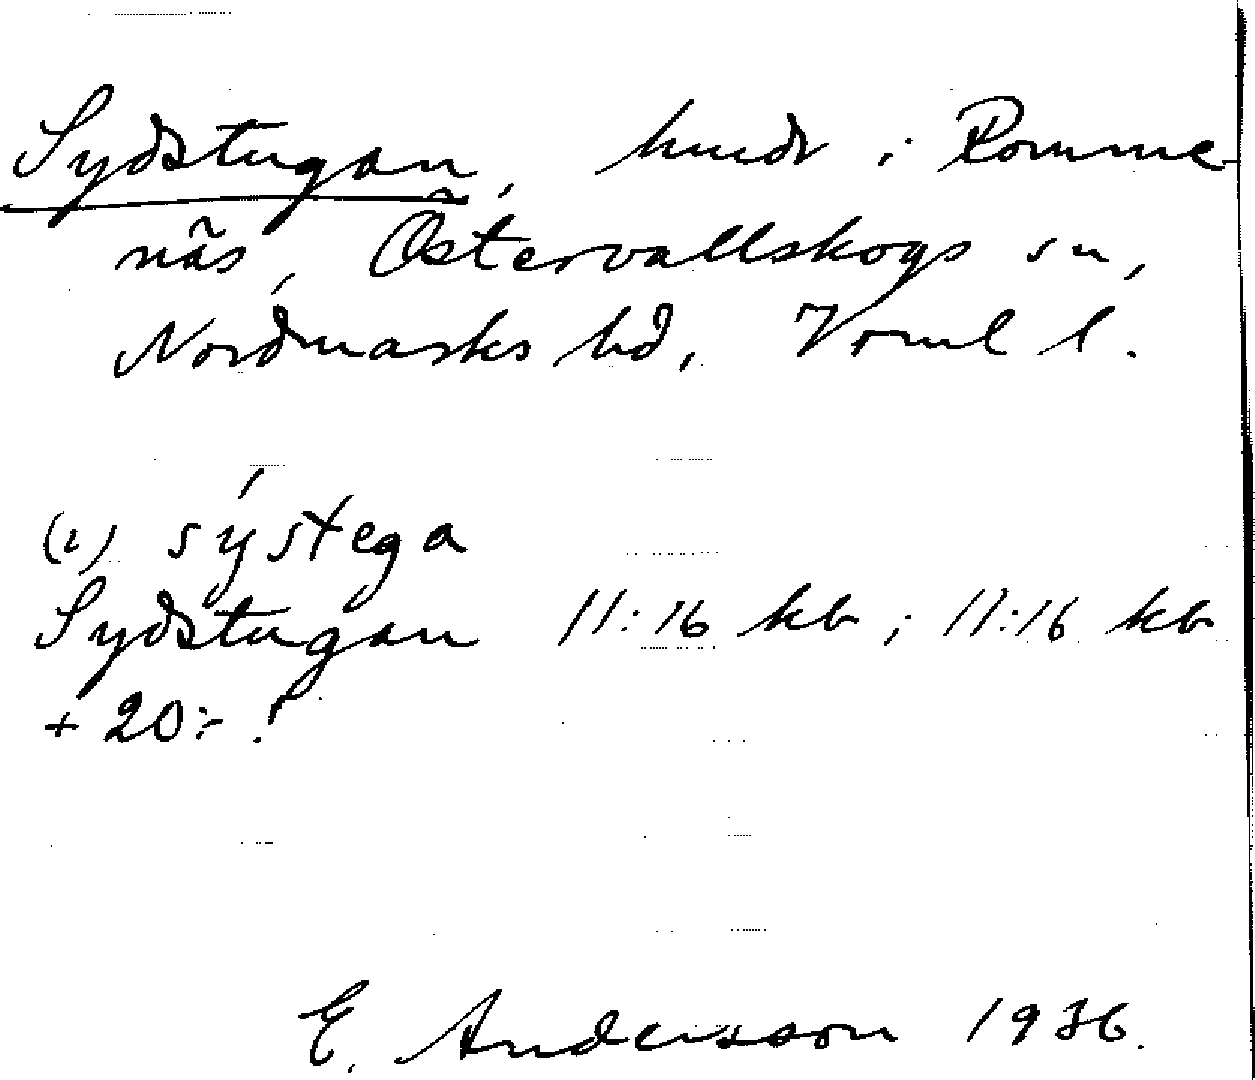 Sydstugan, hmdr i Romme-
näs, Östervallskogs sn,
Nordmarks hd, Vrml l.
(i) sýstega
Sydstugan 11:16 kb ; 11:16 kb
+ 20:- !
E. Andersson 1936.